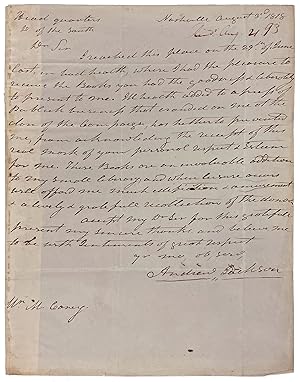 Head quarters
D of the South
Nashville August 2d 1818
Dr Sir
I reached this place on the 29th of June
last, in bad health, where I had the pleasure to
receive the Books you had the goodness
to present to me. Ill health added to a press of
business that crowded on me at the
close of the Campaign, has hitherto prevented
me from acknowledging the receipt of this
real mark of your personal respect & Esteem
for me. These Books are an invaluable addition
to my library, and when leisure occurs
will afford me much & amusement
& a lively & grateful recollection of the donor
accept my Dr Sir for this
present my sincere thanks, and believe me
to be with Sentiments of great respect
yr mo. ob. serv.
Andrew Jackson
Wm McCorey